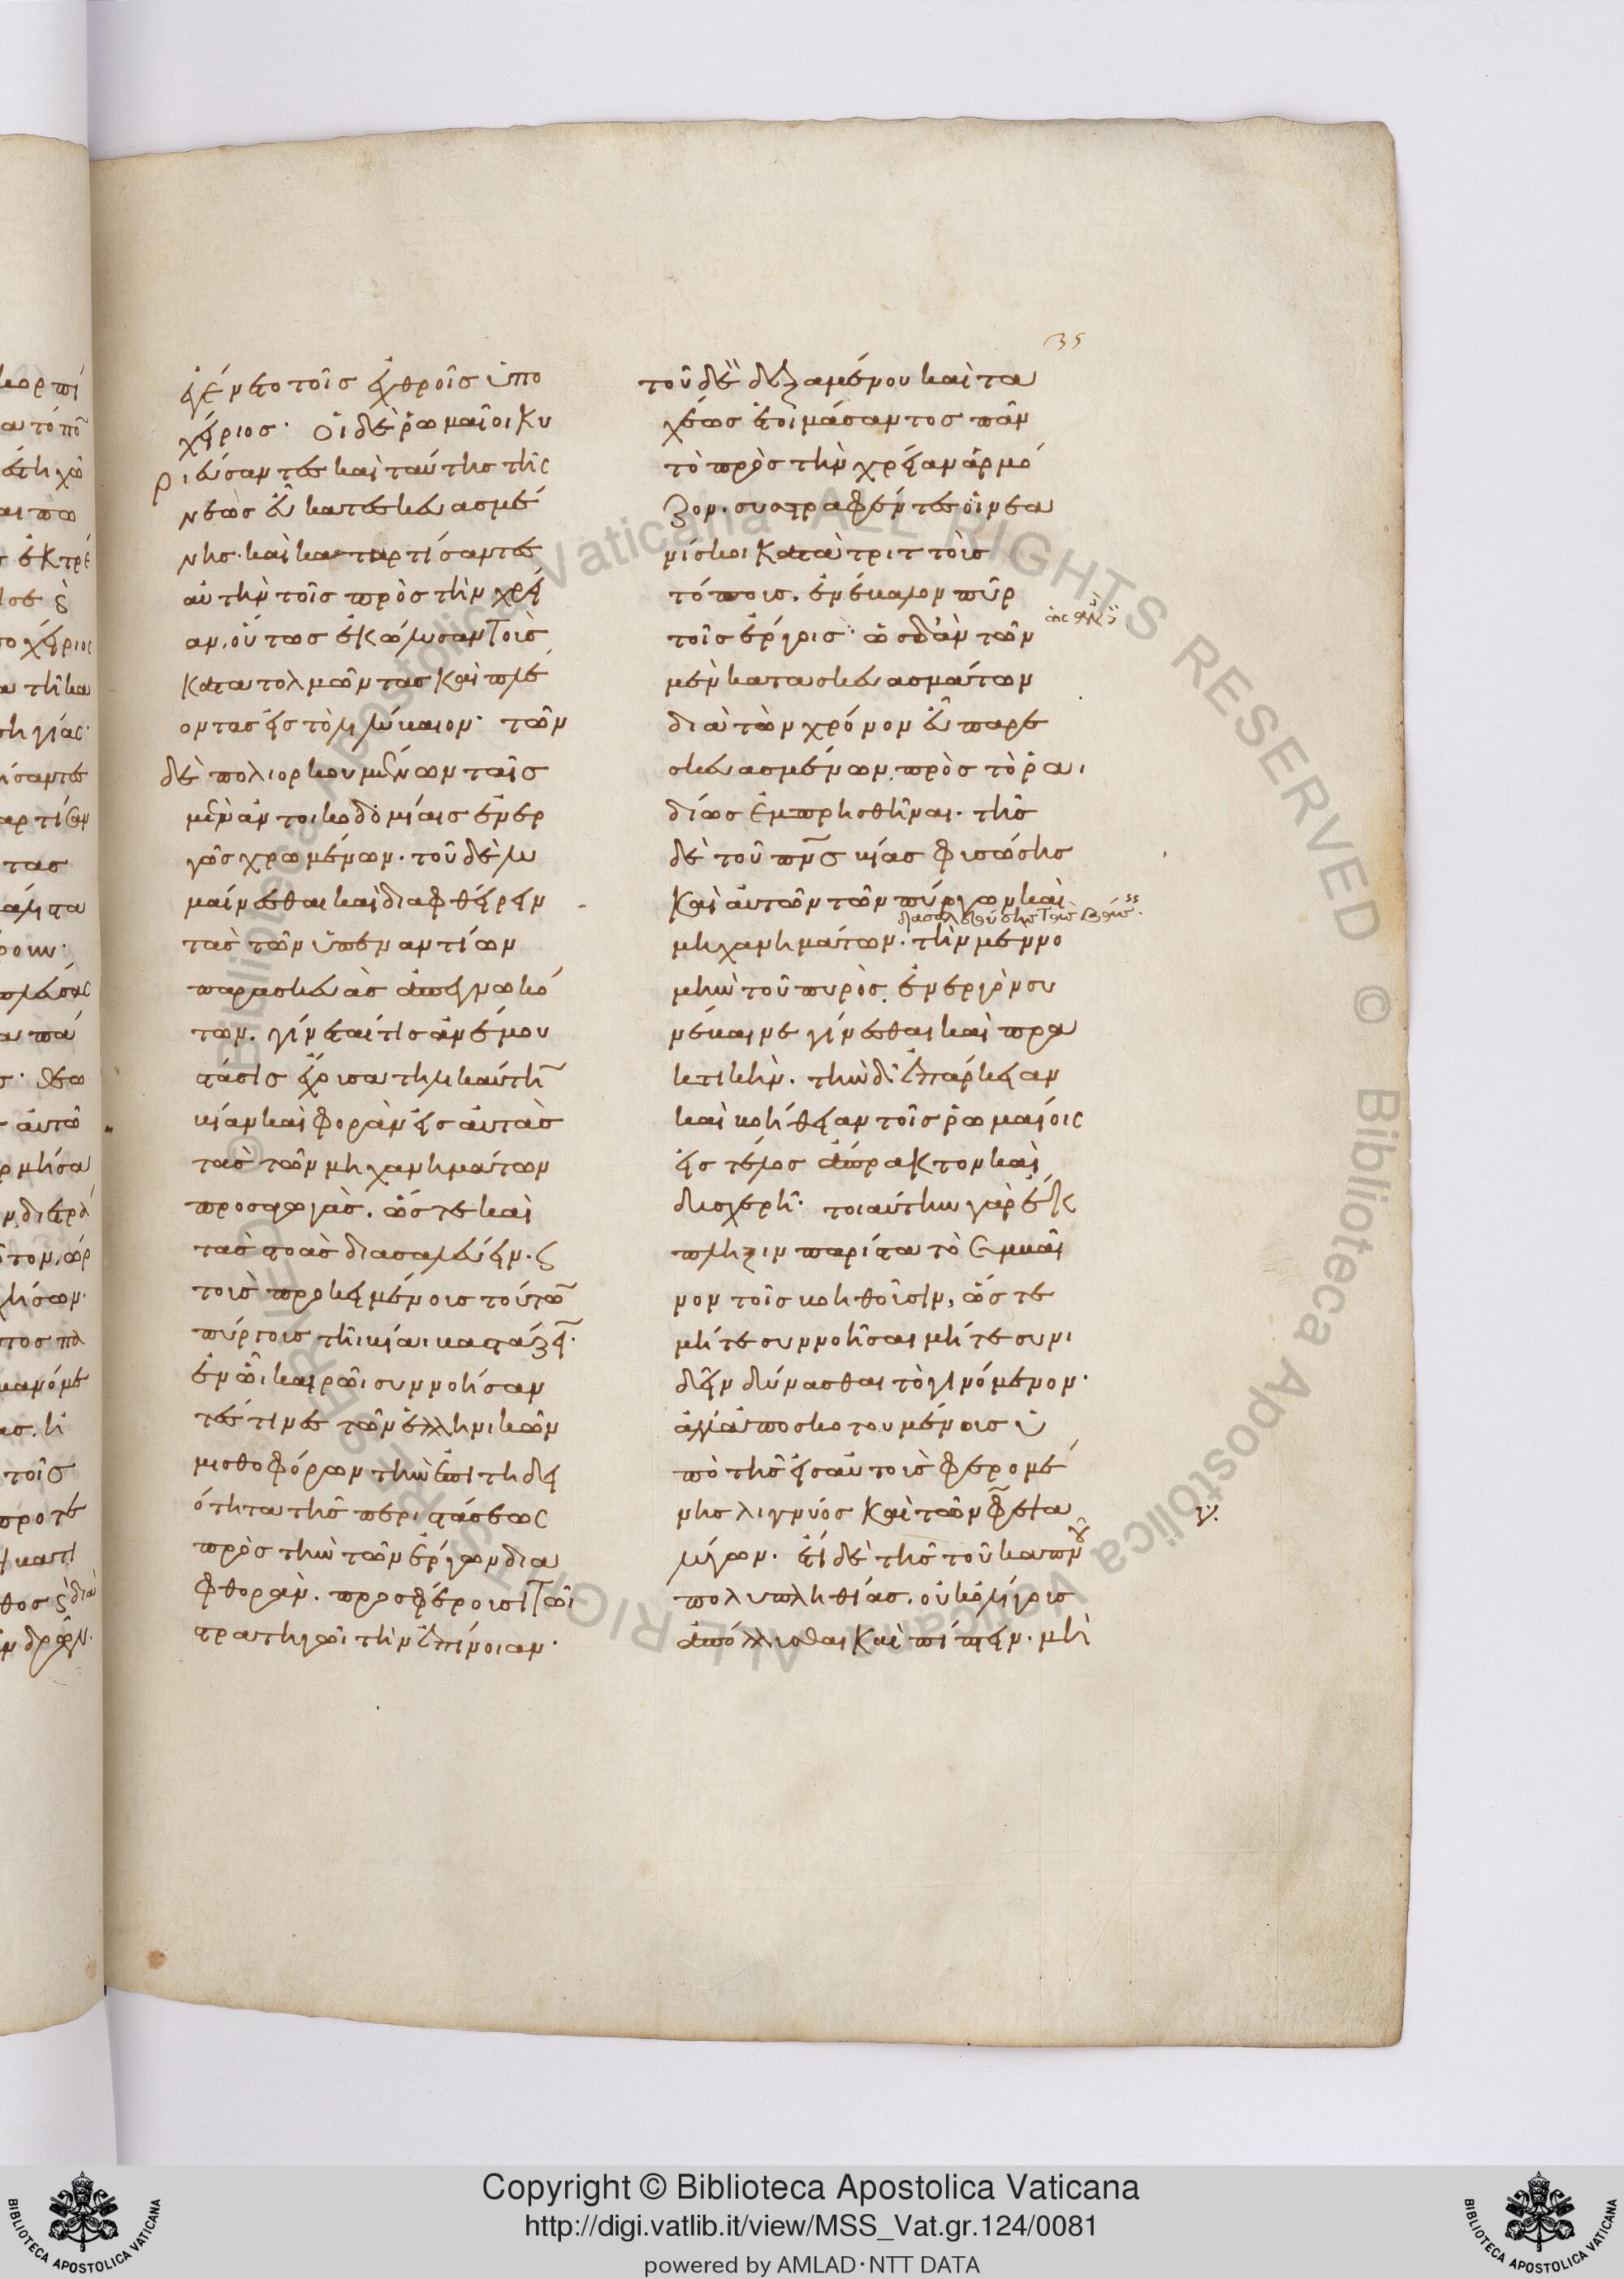 35
ἐγένετο τοῖς ἐχθροῖς ὑπο
χείριος· Οἱ δὲ ῥωμαῖοι κυ
ριεύσαντες καὶ ταύτης τῆς
νεὼς εὖ κατεσκευασμέ
νης· καὶ καταρτίσαντες
αὐτὴν τοῖς πρὸς τὴν χρεί
αν, οὕτως ἐκώλυσαν τοὺς
κατατολμῶντας καὶ πλέ
οντας εἰς τὸ λιλύβαιον· τῶν
δὲ πολιορκουμένων ταῖς
μὲν ἀντοικοδομίαις ἐνερ
γῶς χρωμένων· τοῦ δὲ λυ
μαίνεσθαι καὶ διαφθείρειν
τὰς τῶν ὑπεναντίων
παρασκευὰς ἀπεγνωκό
των· γίνεταί τις ἀνέμου
στάσις ἔχουσα τηλικαύτη
βίαν καὶ φορὰν εἰς αὐτὰς
τὰς τῶν μηχανημάτων
προσαγωγάς· ὥστε καὶ
τὰς στοὰς διασαλεύειν· ϛ
τοὺς προκειμένους τούτω
πύργους τῆι βίαι βαστάζει·
ἐν ὧι καιρῶι συννοήσαν
τές τινες τῶν ἑλληνικῶν
μισθοφόρων τὴν ἐπιτηδει
ότητα τῆς περιστάσεως
πρὸς τὴν τῶν ἔργων δια
φθοράν· προσφέρουσι τῶι
στρατηγῶι τὴν ἐπίνοιαν·
τοῦ δὲ δεξαμένου καὶ τα
χέως ἑτοιμάσαντος πᾶν
τὸ πρὸς τὴν χρείαν ἁρμό
ζον· συστραφέντες οἱ νεα
νίσκοι κατὰ τριττοὺς
τόπους, ἐνέβαλον πῦρ
τοῖς ἔργοις· ὡς δ' ἂν τῶν
μὲν κατασκευασμάτων
διὰ τὸν χρόνον εὖ παρε
σκευασμένων πρὸς τὸ ῥαι
δίως ἐμπρησθῆναι· τῆς
δὲ τοῦ πνς βίας φυσώσης
καὶ αὐτῶν τῶν πύργων καὶ
διασαλευούσης τὰς βάσεις·
μηχανημάτων· τὴν μὲν νο
μὴν τοῦ πυρὸς ἐνεργὸν συ
νέβαινε γίνεσθαι καὶ πρα
κτικήν· τὴν δ' ἐπάρκειαν
καὶ βοήθειαν τοῖς ῥωμαίοις
εἰς τέλος ἄπρακτον καὶ
δυσχερῆ· τοιαύτην γὰρ ἔκ
πληξιν παρίστα τὸ συμβαῖ
νον τοῖς βοηθοῦσιν, ὥστε
μήτε συννοῆσαι μήτε συνι
δεῖν δύνασθαι τὸ γινόμενον·
ἀλλ' ἀποσκοτουμένους ὑ
πὸ τῆς εἰς αὐτοὺς φερομέ
νης λιγνύος καὶ τῶν φεψα
λύγων· ἔτι δὲ τῆς τοῦ καπνοῦ
πολυπληθίας, οὐκ ὀλίγους
ἀπόλλυσθαι καὶ πίπτειν· μὴ
Copyright © Biblioteca Apostolica Vaticana
http://digi.vatlib.it/view/MSS_Vat.gr.124/0081
powered by AMLAD·NTT DATA
BIBLIOTECA APOSTOLICA VATICANA
BIBLIOTECA APOSTOLICA VATICANA
© Biblioteca Apostolica Vaticana ALL RIGHTS RESERVED © Biblioteca Apostolica Vaticana ALL RIGHTS RESERVED